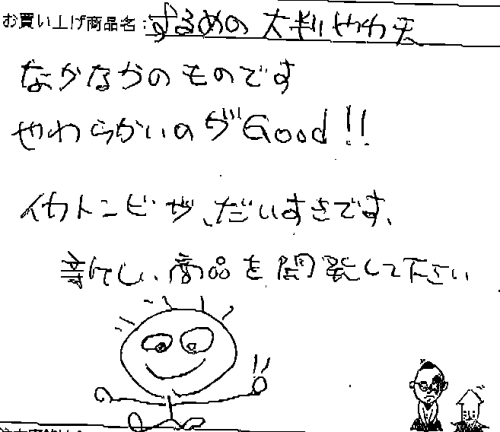 お買い上げ商品名：するめの大判やわ天
なかなかのものです
やわらかいのがGood!!
イカトンビが、だいすきです、
新しい商品を開発して下さい
!!